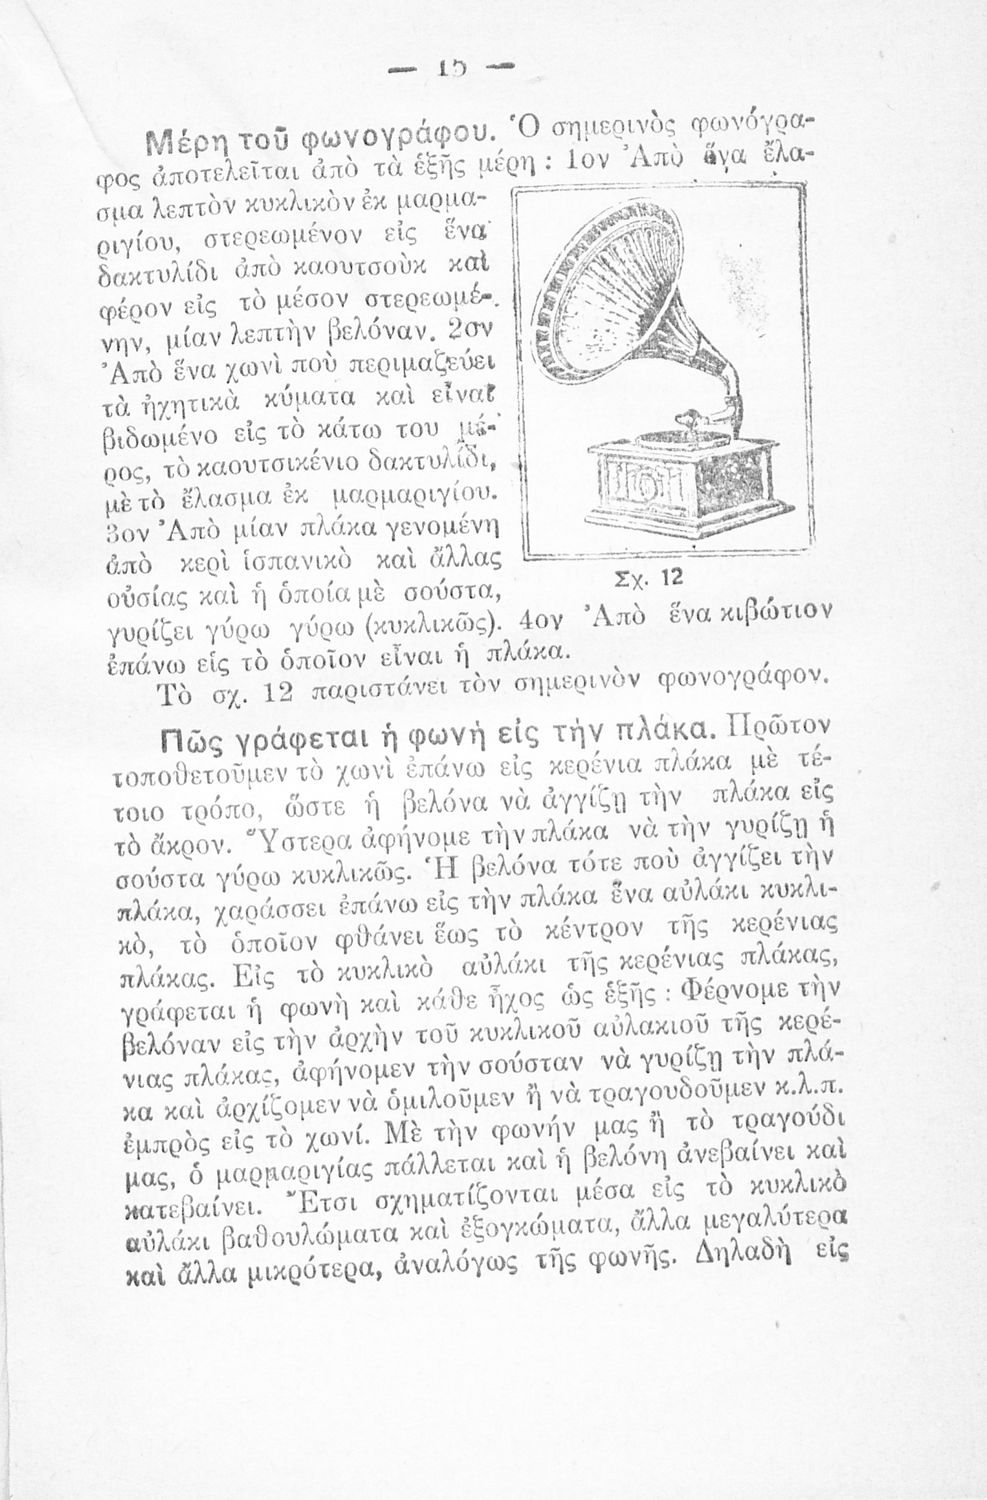 — 15 —
Μέρη τοῦ φωνογράφου. Ὁ σημερινὸς φωνόγρα-
φος ἀποτελεῖται ἀπὸ τὰ ἑξῆς μέρη : 1ον Ἀπὸ ἕνα ἔλα-
σμα λεπτὸν κυκλικὸν ἐκ μαρμα-
ριγίου, στερεωμένον εἰς ἕνα
δακτυλίδι ἀπὸ καουτσοὺκ καὶ
φέρον εἰς τὸ μέσον στερεωμέ-
νην, μίαν λεπτὴν βελόναν. 2ον
Ἀπὸ ἕνα χωνὶ ποὺ περιμαζεύει
τὰ ἠχητικὰ κύματα καὶ εἶναι
βιδωμένο εἰς τὸ κάτω του μέ-
ρος, τὸ καουτσικένιο δακτυλίδι,
μὲ τὸ ἔλασμα ἐκ μαρμαριγίου.
3ον Ἀπὸ μίαν πλάκα γενομένη
ἀπὸ κερὶ ἱσπανικὸ καὶ ἄλλας
οὐσίας καὶ ἡ ὁποία μὲ σούστα,
γυρίζει γύρω γύρω (κυκλικῶς). 4ον Ἀπὸ ἕνα κιβώτιον
ἐπάνω εἰς τὸ ὁποῖον εἶναι ἡ πλάκα.
Σχ. 12
Τὸ σχ. 12 παριστάνει τὸν σημερινὸν φωνογράφον.
Πῶς γράφεται ἡ φωνὴ εἰς τὴν πλάκα. Πρῶτον
τοποθετοῦμεν τὸ χωνὶ ἐπάνω εἰς κερένια πλάκα μὲ τέ-
τοιο τρόπο, ὥστε ἡ βελόνα νὰ ἀγγίζῃ τὴν πλάκα εἰς
τὸ ἄκρον. Ὕστερα ἀφήνομε τὴν πλάκα νὰ τὴν γυρίζῃ ἡ
σούστα γύρω κυκλικῶς. Ἡ βελόνα τότε ποὺ ἀγγίζει τὴν
πλάκα, χαράσσει ἐπάνω εἰς τὴν πλάκα ἕνα αὐλάκι κυκλι-
κὸ, τὸ ὁποῖον φθάνει ἕως τὸ κέντρον τῆς κερένιας
πλάκας. Εἰς τὸ κυκλικὸ αὐλάκι τῆς κερένιας πλάκας,
γράφεται ἡ φωνὴ καὶ κάθε ἦχος ὡς ἑξῆς : Φέρνομε τὴν
βελόναν εἰς τὴν ἀρχὴν τοῦ κυκλικοῦ αὐλακιοῦ τῆς κερέ-
νιας πλάκας, ἀφήνομεν τὴν σούσταν νὰ γυρίζῃ τὴν πλά-
κα καὶ ἀρχίζομεν νὰ ὁμιλοῦμεν ἢ νὰ τραγουδοῦμεν κ.λ.π.
ἐμπρὸς εἰς τὸ χωνί. Μὲ τὴν φωνήν μας ἢ τὸ τραγούδι
μας, ὁ μαρμαριγίας πάλλεται καὶ ἡ βελόνη ἀνεβαίνει καὶ
κατεβαίνει. Ἔτσι σχηματίζονται μέσα εἰς τὸ κυκλικὸ
αὐλάκι βαθουλώματα καὶ ἐξογκώματα, ἄλλα μεγαλύτερα
καὶ ἄλλα μικρότερα, ἀναλόγως τῆς φωνῆς. Δηλαδὴ εἰς